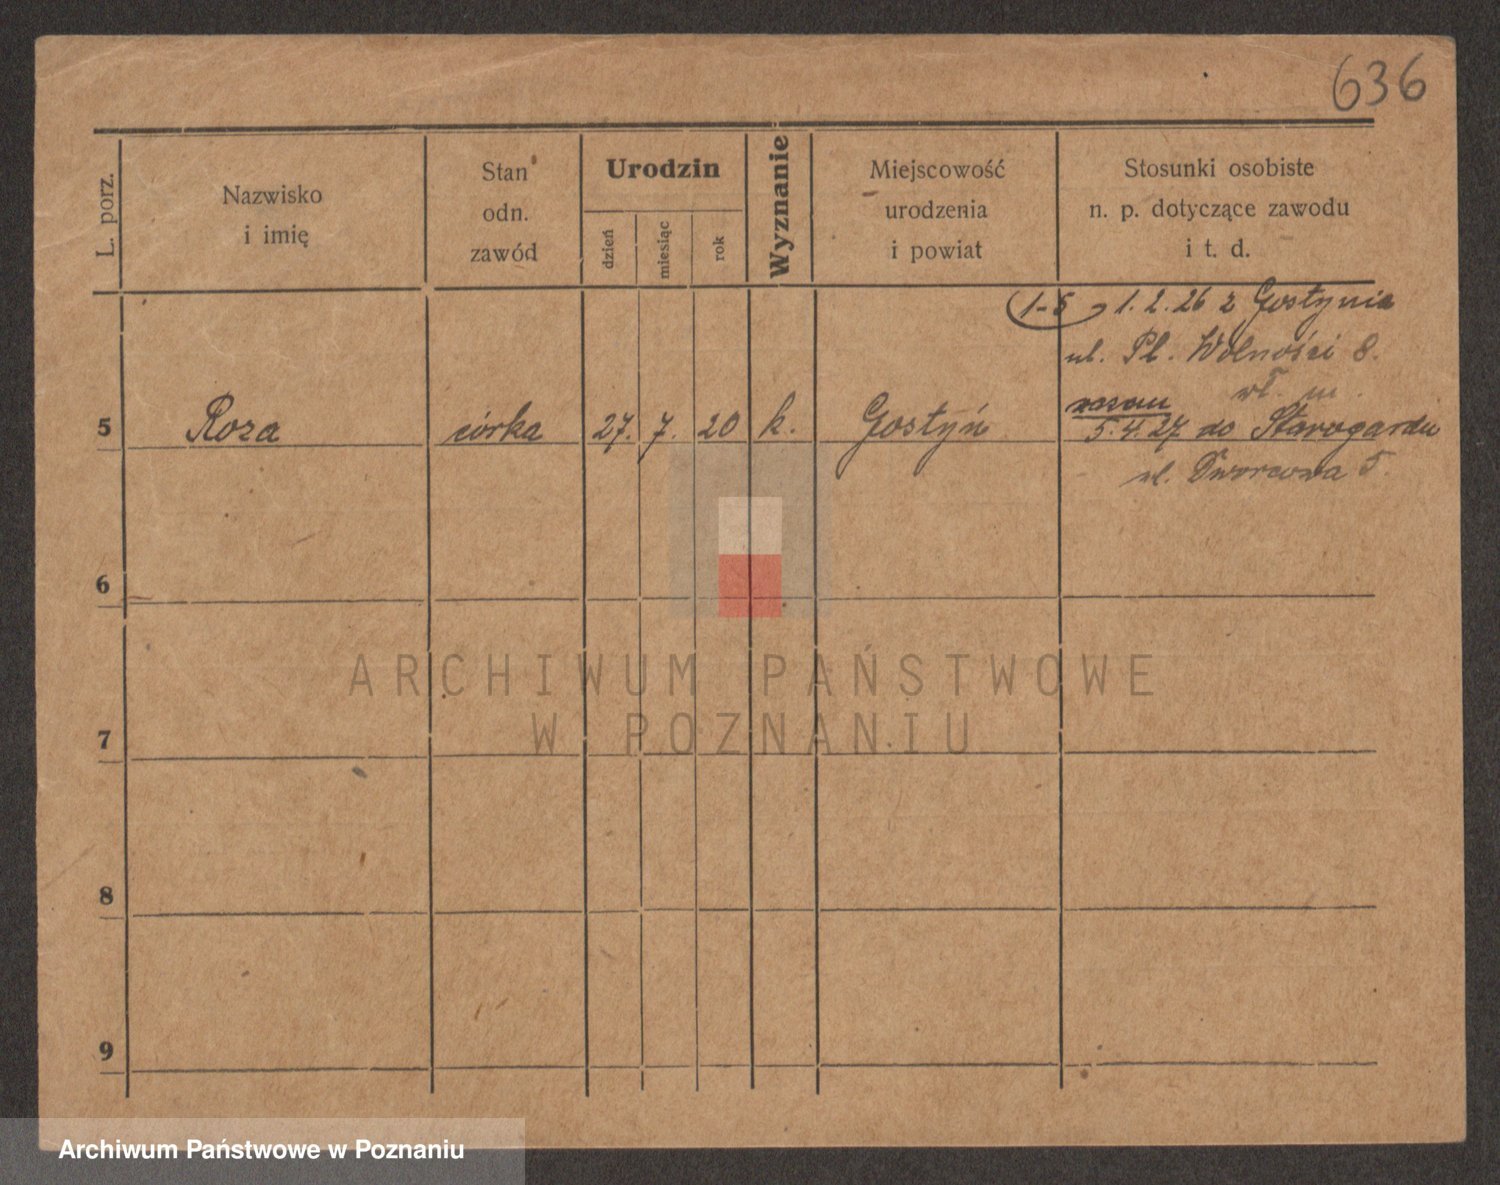 636
L. porz.
Nazwisko
i imię
Stan
odn.
zawód
Urodzin
dzień
miesiąc
rok
Wyznanie
Miejscowość
urodzenia
i powiat
Stosunki osobiste
n. p. dotyczące zawodu
i t. d.
1-5 1.2.26 z Gostynia
ul. Pl. Wolności 8.
wł. m.
5 Roza córka 27. 7. 20 k. Gostyń
5.4.27 do Starogardu
ul. Dworcowa 5.
6
7
8
9
ARCHIWUM PAŃSTWOWE
W POZNANIU
Archiwum Państwowe w Poznaniu